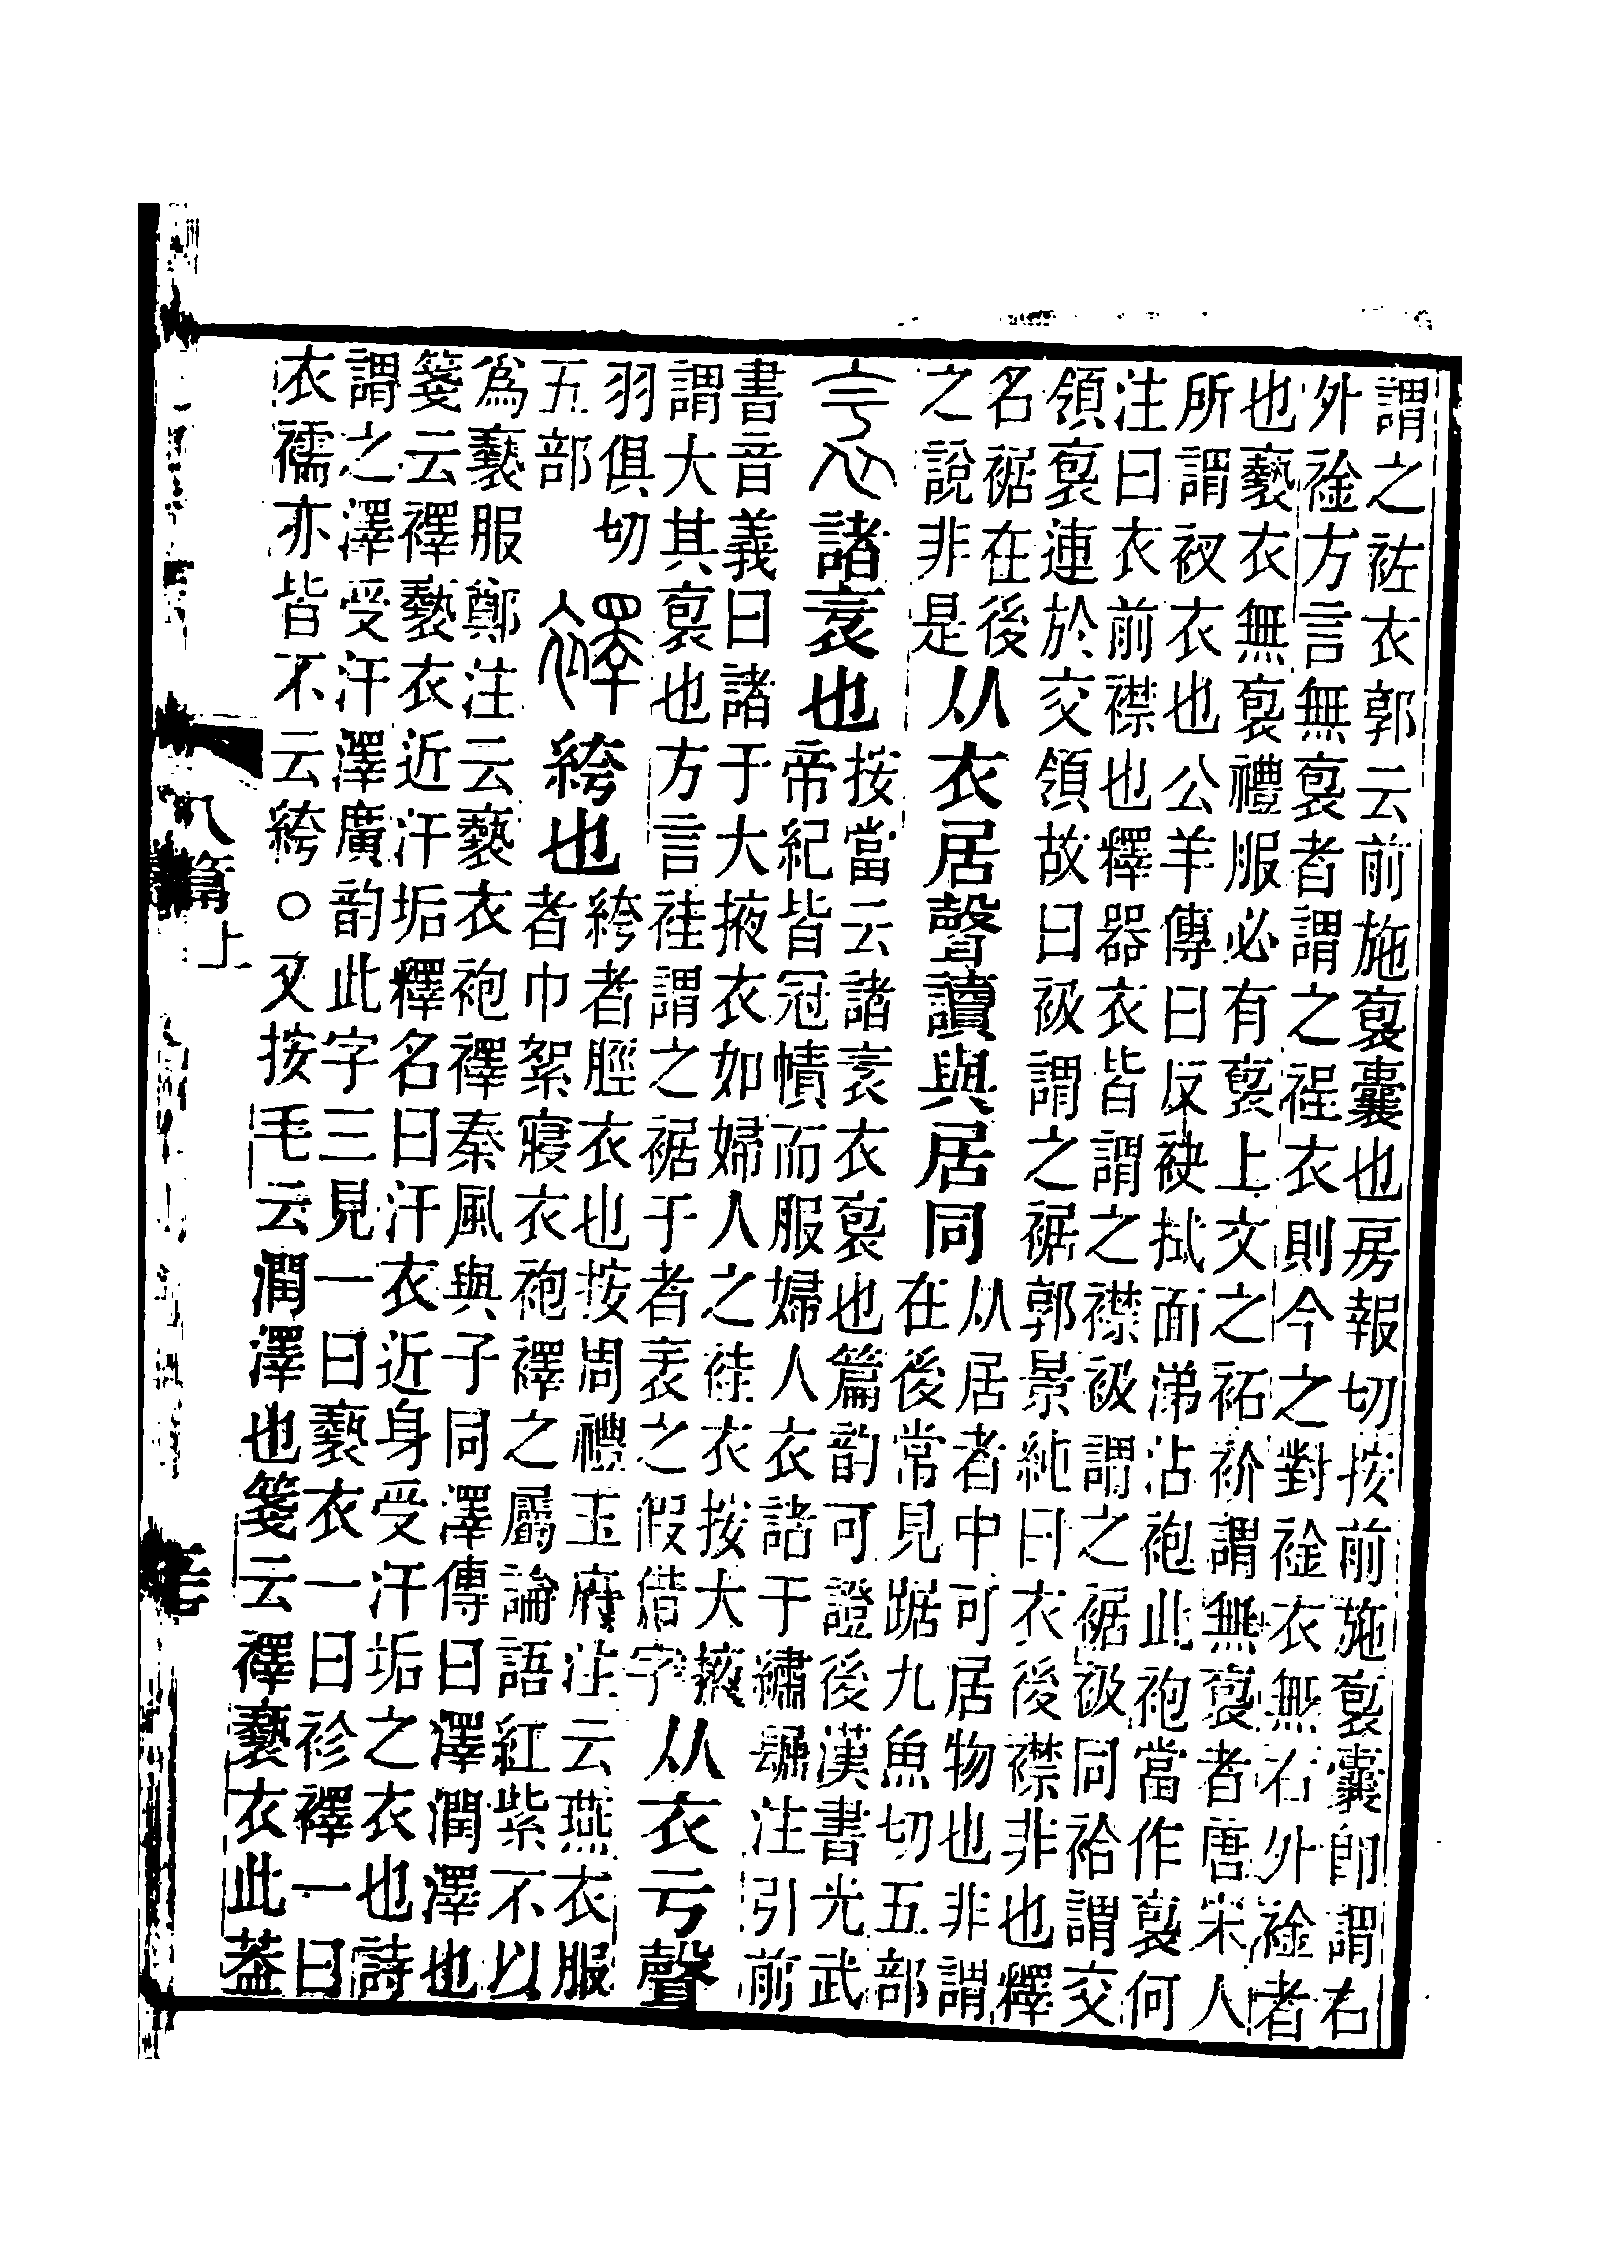 謂之袏衣郭云前施袌囊也房報切按前施袌囊卽謂右
外䘳方言無袌者謂之裎衣則今之對䘳衣無右外䘳者
也褻衣無袌禮服必有袌上文之袥衸謂無袌者唐宋人
所謂衩衣也公羊傳曰反袂拭面涕沾袍此袍當作袌何
注曰衣前襟也釋器衣皆謂之襟衱謂之裾衱同袷謂交
領袌連於交領故曰衱謂之裾郭景純曰衣後襟非也釋
名裾在後
之說非是
从衣居聲讀與居同
从居者中可居物也非謂
在後常見踞九魚切五部
衧諸衧也
按當云諸衧衣袌也篇韵可證後漢書光武
帝紀皆冠幘而服婦人衣諸于繡䘿注引前
書音義曰諸于大掖衣如婦人之袿衣按大掖
謂大其袌也方言袿謂之裾于者衧之假借字
从衣亏聲
羽俱切
五部
襗絝也
絝者脛衣也按周禮玉府注云燕衣服
者巾絮寢衣袍襗之屬論語紅紫不以
爲褻服鄭注云褻衣袍襗秦風與子同澤傳曰澤潤澤也
箋云襗褻衣近汗垢釋名曰汗衣近身受汗垢之衣也詩
謂之澤受汗澤廣韵此字三見一曰褻衣一曰衫襗一曰
衣襦亦皆不云絝○又按毛云潤澤也箋云襗褻衣此葢
八篇上